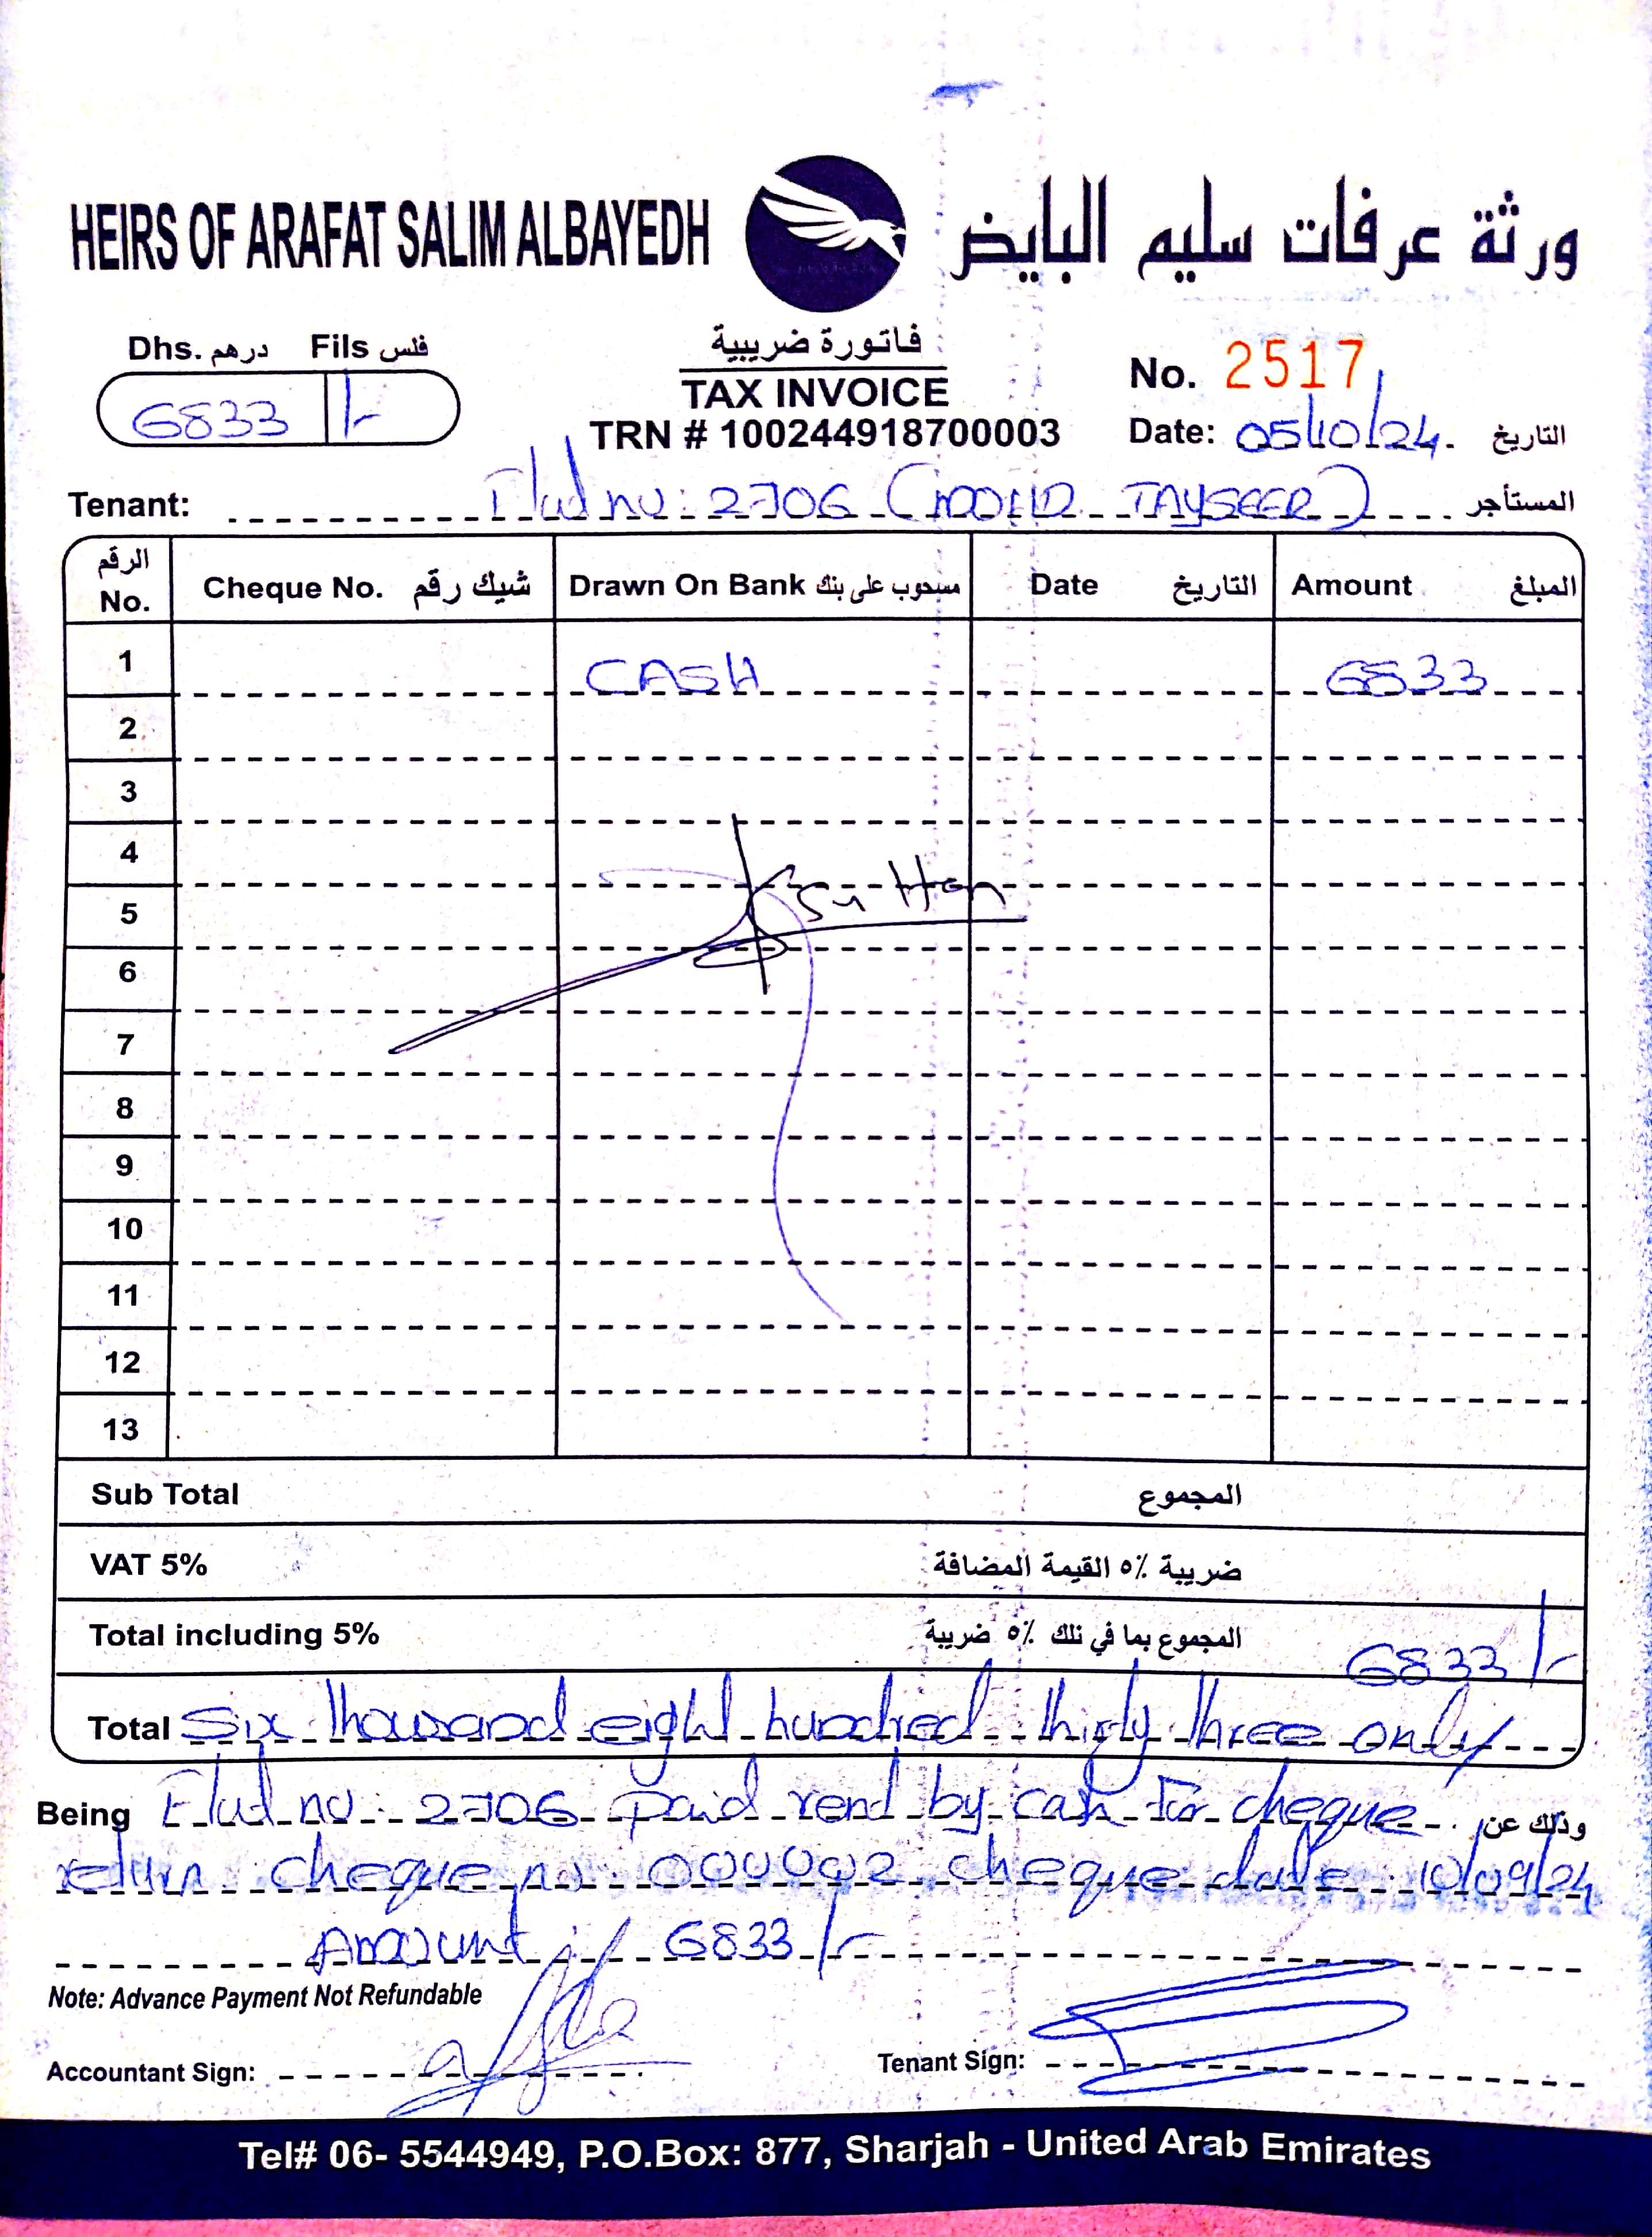 HEIRS OF ARAFAT SALIM ALBAYEDH ورثة عرفات سليم البايض
Dhs. درهم Fils فلس
6833 /-
فاتورة ضريبية
TAX INVOICE
TRN # 100244918700003
No. 2517
Date: 05/10/24. التاريخ
Tenant: Flat no: 2706 (MOHD TAYSEER) المستأجر
الرقم No. Cheque No. شيك رقم Drawn On Bank مسحوب على بنك Date التاريخ Amount المبلغ
1 CASH 6833
2
3
4
5 Sultan
6
7
8
9
10
11
12
13
Sub Total المجموع
VAT 5% ضريبة ٥٪ القيمة المضافة
Total including 5% المجموع بما في ذلك ٥٪ ضريبة 6833/-
Total Six thousand eight hundred thirty three only
Being Flat no: 2706 paid rent by cash for cheque وذلك عن
return cheque no: 000002 cheque date 10/09/24
Amount: 6833/-
Note: Advance Payment Not Refundable
Accountant Sign:
Tenant Sign:
Tel# 06- 5544949, P.O.Box: 877, Sharjah - United Arab Emirates